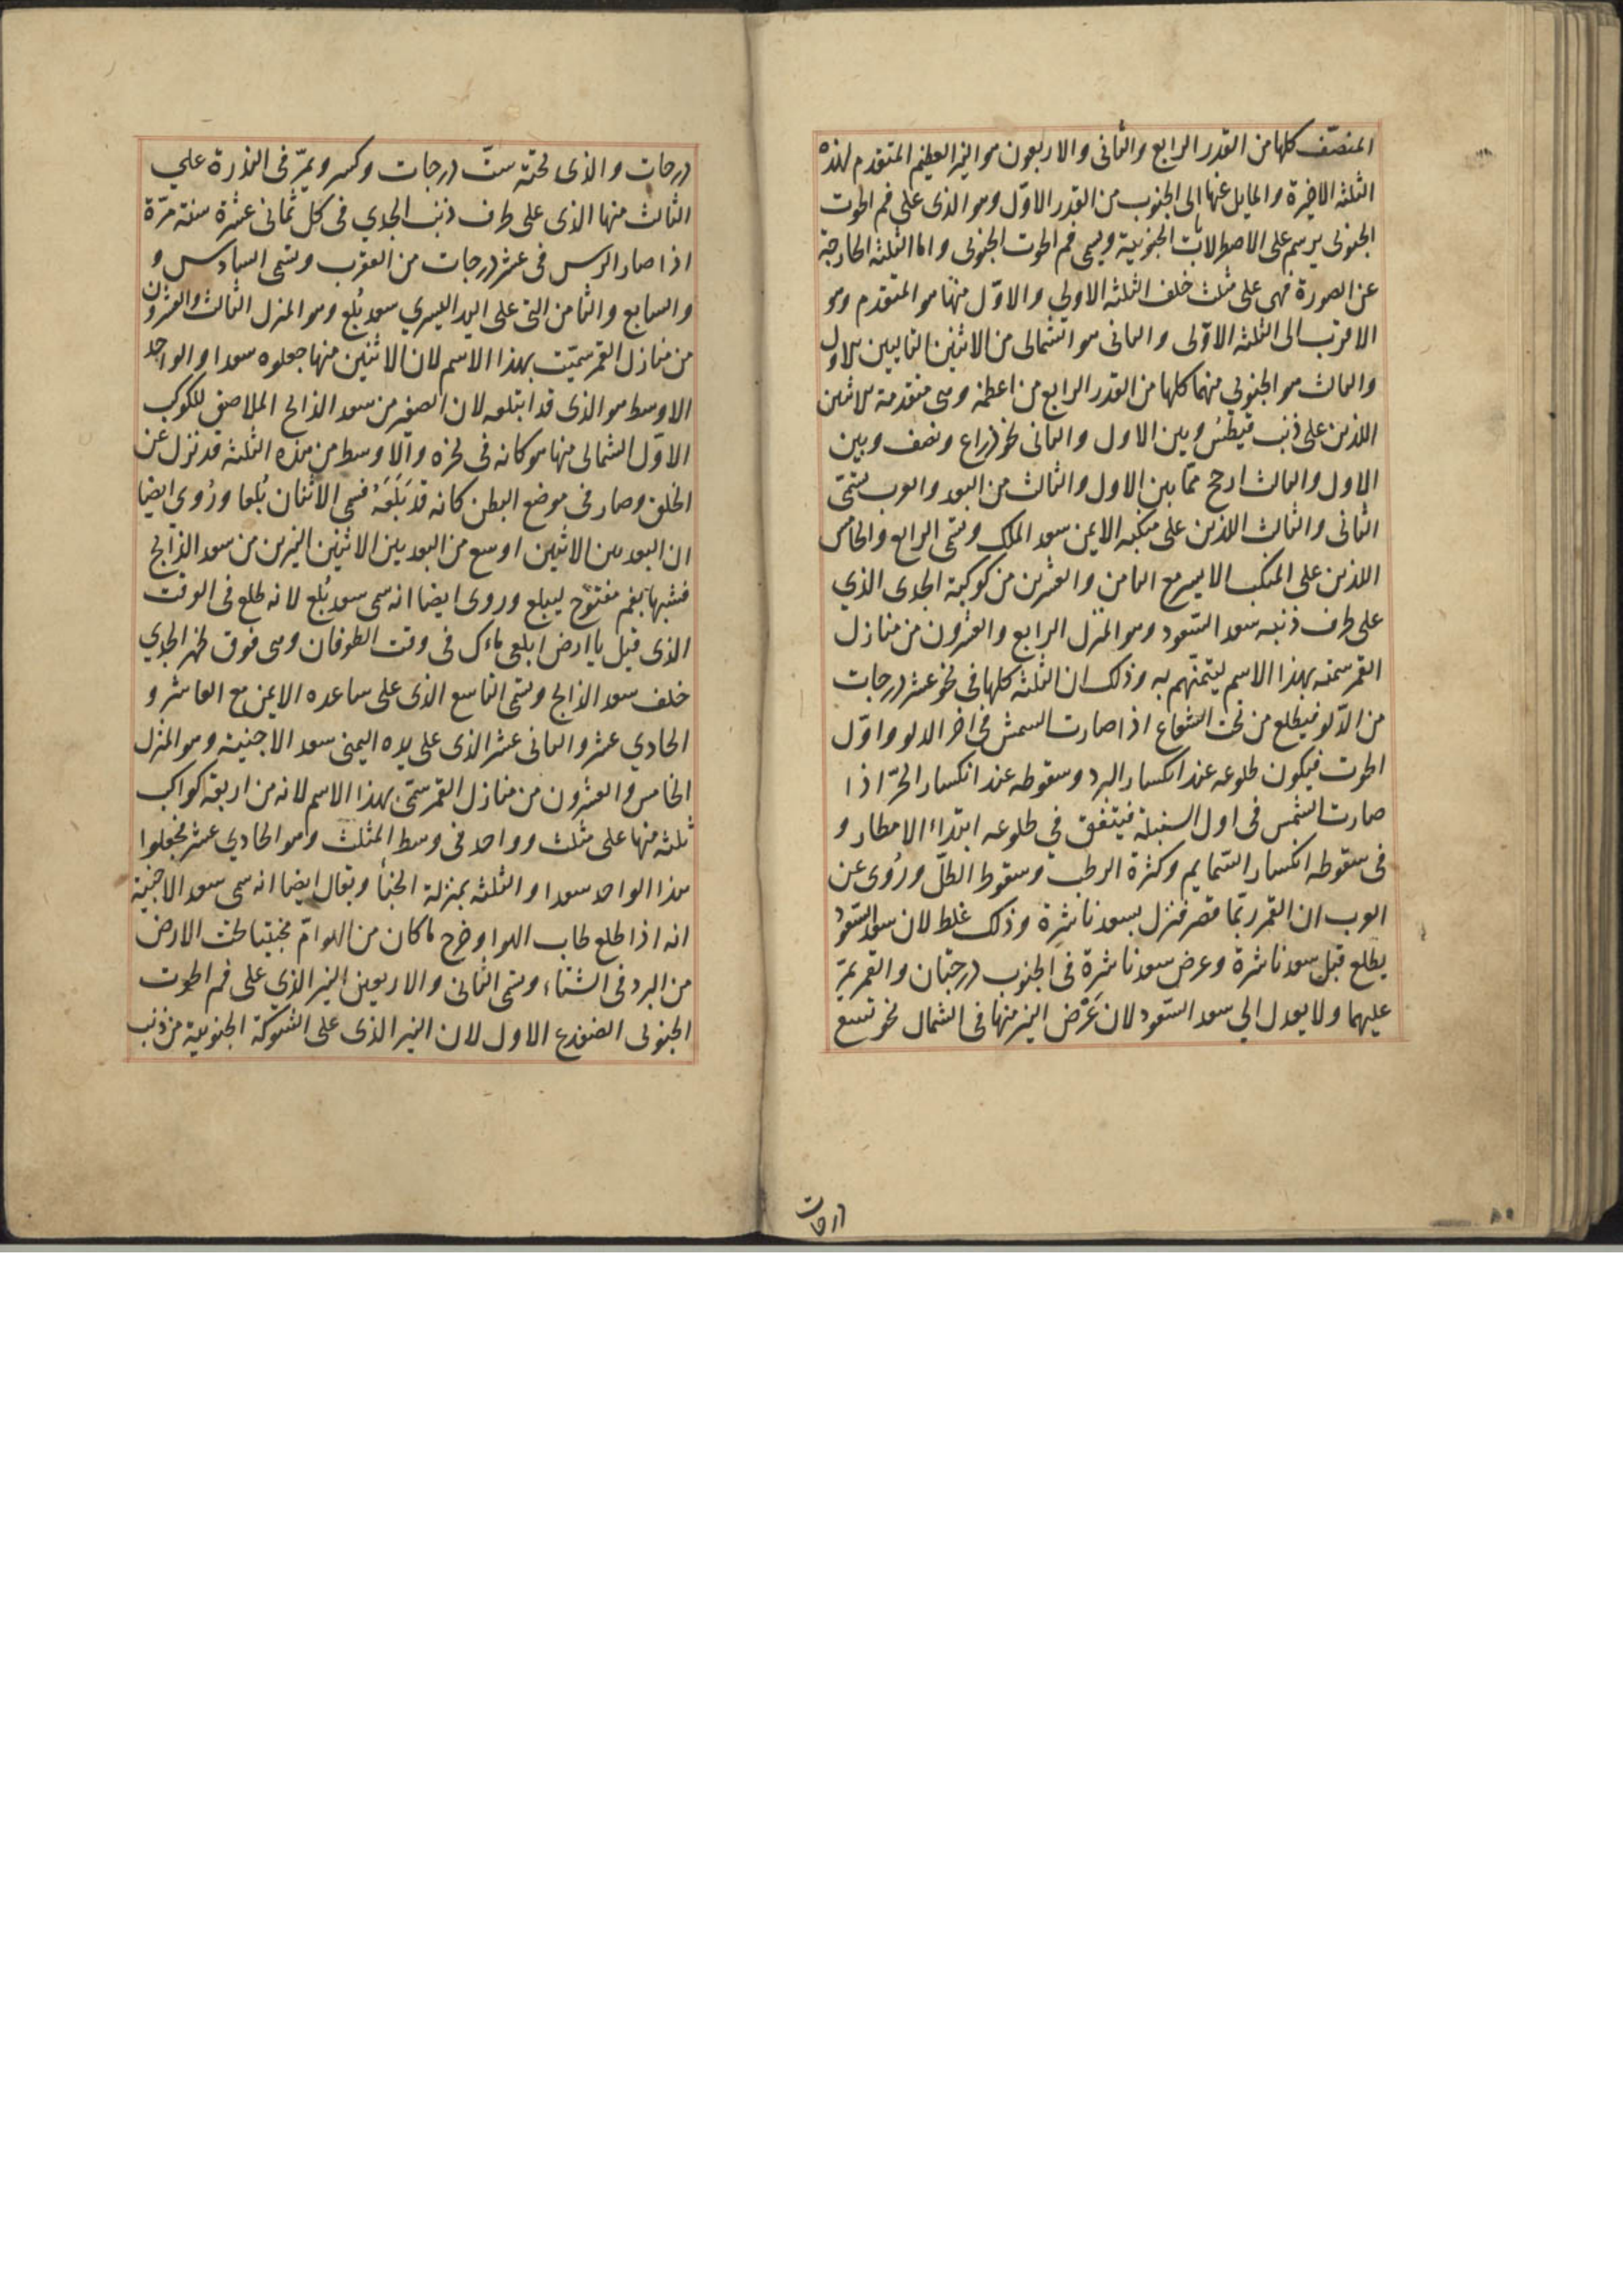 المنصّف كلها من القدر الرابع والثانى والاربعون هو النير العظيم المتقدم لهذه
الثلثه الاخيرة والمايل عنها الى الجنوب من القدر الاوّل وهو الذى على فم الحوت
الجنوبى يرسم على الاصطرلابات الجنوبية ويسمى فم الحوت الجنوبى واما الثلثه الخارجة
عن الصورة فهى على مثلث خلف الثلثه الاولى والاوّل منها هو المتقدم وهو
الاقرب الى الثلثه الاوّلى والثانى هو الشمالى من الاثنين التاليين للاول
والثالث هو الجنوبى منهما كلها من القدر الرابع من اعظمه وهى متقدمة للاثنين
اللذين على ذنب قيطس وبين الاول والثانى نحو ذراع ونصف وبين
الاول والثالث ارجح ممّا بين الاول والثالث من البعد والعرب تسمّى
الثانى والثالث اللذين على منكبه الايمن سعد الملك وتسمى الرابع والخامس
اللذين على المنكب الايسر مع الثامن والعشرين من كوكبة الجدى الذي
على طرف ذنبه سعد السّعود وهو المنزل الرابع والعشرون من منازل
القمر سمته بهذا الاسم لتيمنهم به وذلك ان الثلثه كلها فى نحو عشر درجات
من الدّلو فيطلع من تحت الشعاع اذا صارت الشمش فى اخر الدلو واوّل
الحوت فيكون طلوعه عند انكسار البرد وسقوطه عند انكسار الحرّ اذا
صارت الشمس فى اول السنبلة فيتفق فى طلوعه ابتداء الامطار و
فى سقوطه انكسار السّمايم وكثرة الرطب وسقوط الطّل ورُوى عن
العرب ان القمر ربّما قصر فنزل بسعد ناشرة وذلك غلط لان سعد السّعود
يطلع قبل سعد ناشرة وعرض سعد ناشرة فى الجنوب درجتان والقمر يمرّ
عليهما ولا يعدل الى سعد السّعود لان عَرْض النير منها فى الشمال نحو تسع
درجات
درجات والذى تحته ستّ درجات وكسر ويمرّ فى الندرة علي
الثالث منها الذى على طرف ذنب الجدي فى كل ثمانى عشرة سنة مرّة
اذا صار الرس فى عشر درجات من العقرب وتسمى السادس و
والسابع والثامن التى على اليد اليسري سعد بُلع وهو المنزل الثالث والعشرون
من منازل القمر سميّت بهذا الاسم لان الاثنين منها جعلوه سعدا والواحد
الاوسط هو الذى قد ابتلعه لان الصغير من سعد الذابح الملاصق للكوكب
الاوّل الشمالى منها هو كانه فى نحره والاوسط من هذه الثلثه قد نزل عن
الحلق وصار فى موضع البطن كانه قد بَلَعَهُ فسمى الاثنان بُلعا ورُوى ايضا
ان البعد بين الاثنين اوسع من البعد بين الاثنين النيرين من سعد الذابح
فشبها بفم مفتوح ليبلع وروى ايضا انه سمى سعد بُلع لانه طلع فى الوقت
الذى قيل يا ارض ابلعى ماءك فى وقت الطوفان وهى فوق ظهر الجدي
خلف سعد الذابح وتسمى التاسع الذى على ساعده الايمن مع العاشر و
الحادي عشر والثانى عشر الذى على يده اليمنى سعد الاخبية وهو المنزل
الخامس والعشرون من منازل القمر سمّى بهذا الاسم لانه من اربعة كواكب
ثلثه منها على مثلث وواحد فى وسط المثلث وهو الحادي عشر فجعلوا
هذا الواحد سعدا والثلثه بمنزلة الخبأ ويقال ايضا انه سمى سعد الاخبية
انه اذا طلع طاب الهوا وخرج ما كان من الهوامّ مختبئا تحت الارض
من البرد فى الشتاء وتسمى الثانى والاربعين النير الذي على فم الحوت
الجنوبى الضفدع الاول لان النير الذى على الشوكة الجنوبية من ذنب